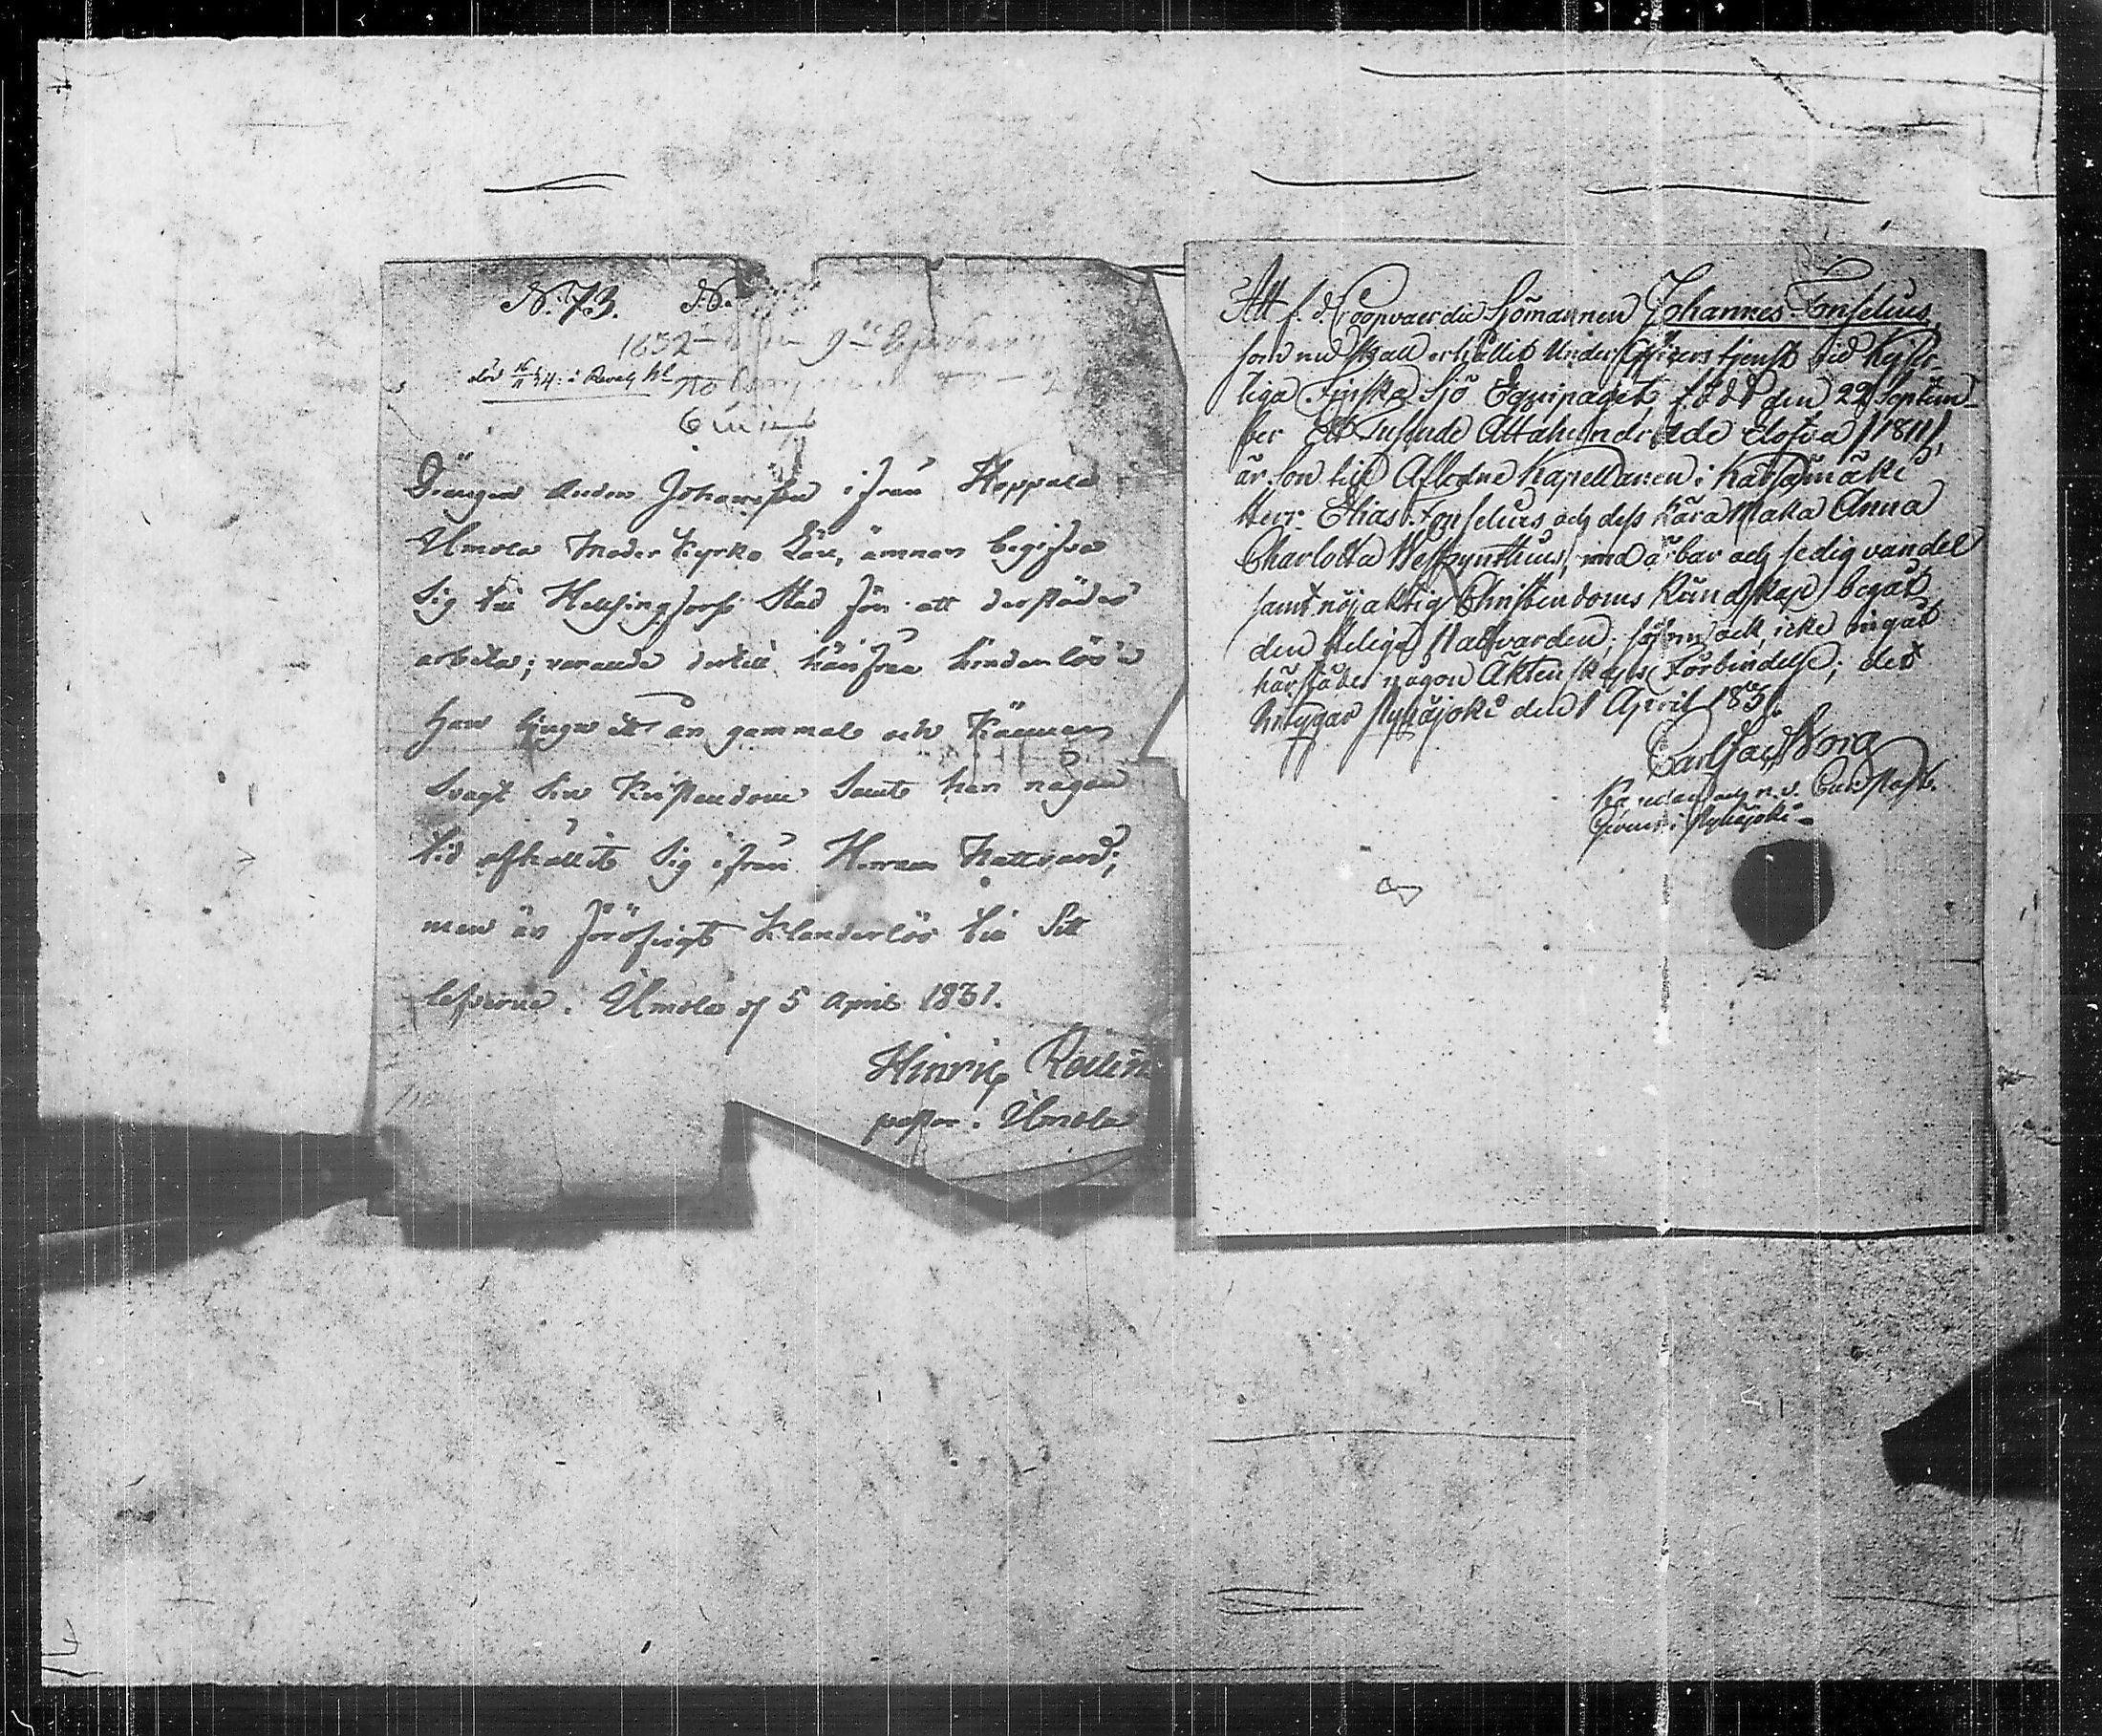 N:73. N:
1832
död 16/11 34: i Reval
Drängen Anders Johansson ifrån Koppala
Umola Moder Kyrko Län, ämnar begifva
Sig till Helsingfors Stad för att derstädes
arbeta; varande dertill härifrån hinderlös:
Han är gammal och känner
Svagt Sin Kristendom Samt har någon
tid afhållit Sig ifrån Herrans Nattvard;
men är föröfrigt klanderlös till Sitt
lefverne. Umola d 5 April 1831.
Hinric
pastor i Umola
Att f. d. Coopvaerdie Sjömannen Johannes Fonselius,
som nu skall erhållit Under Officers tjenst vid Kejser-
liga Finska Sjö Equipaget, född den 22 Septem-
ber Ett Tusende Åttahundrade Elofva /1811/,
är Son till Aflidne Kapellanen i Kärsämäki
Herr Elias Fonselius och dess Kära Maka Anna
Charlotta Westzynthius, med ärbar och sedig vandel
samt nöjaktig Christendoms Kundskap begåt
den Heliga Nattvarden; såsom ock icke ingåt
härstädes någon Äktenskaps Förbindelse; det
intygar Pyhäjoki den 1 April 1831.
Carl Jac. Borg
n. v. Past.
i Pyhäjoki